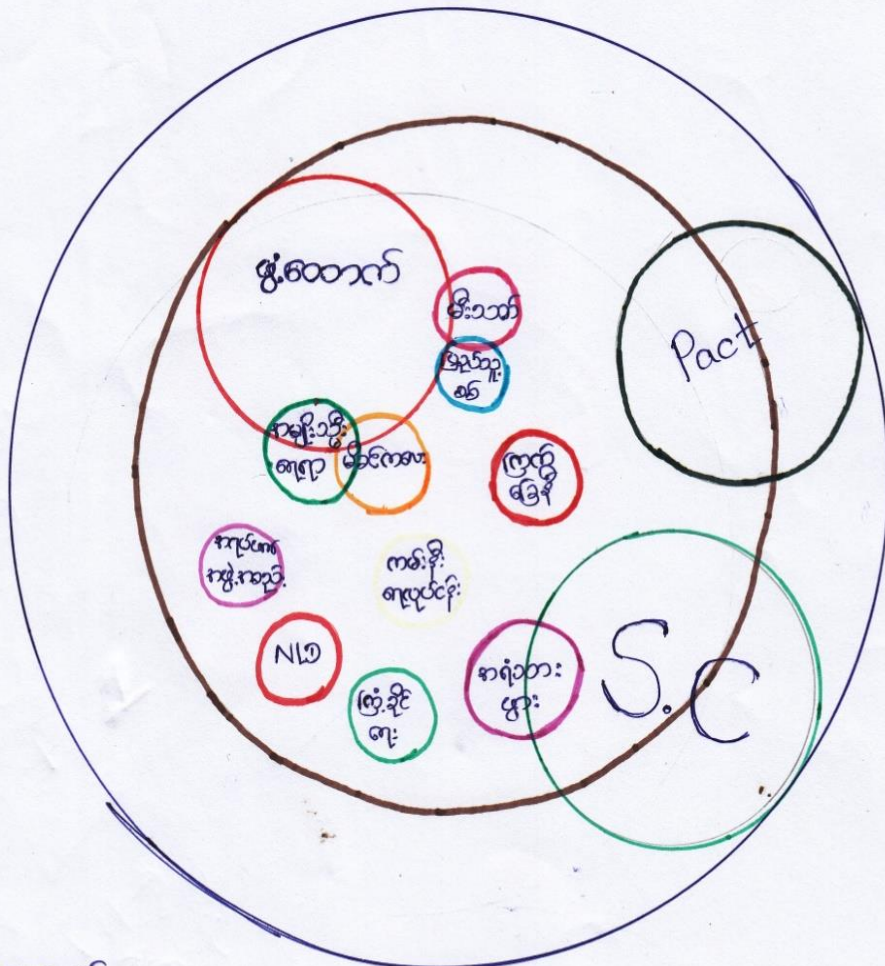 ဖွံ့ဝေတာက်
မီးသတ်
ပြည်သူ့
စစ်
Pact
အမျိုးသ္မီး
ရေးရာ
မိခင်ကလေး
ကြက်
ခြေနီ
အရပ်ဖက်
အဖွဲ့အစည်း
ကမ်းနီး
ရေလုပ်ငန်း
NLD
ကြံ့ခိုင်
ရေး
အရံသား
ဖွား
S.C